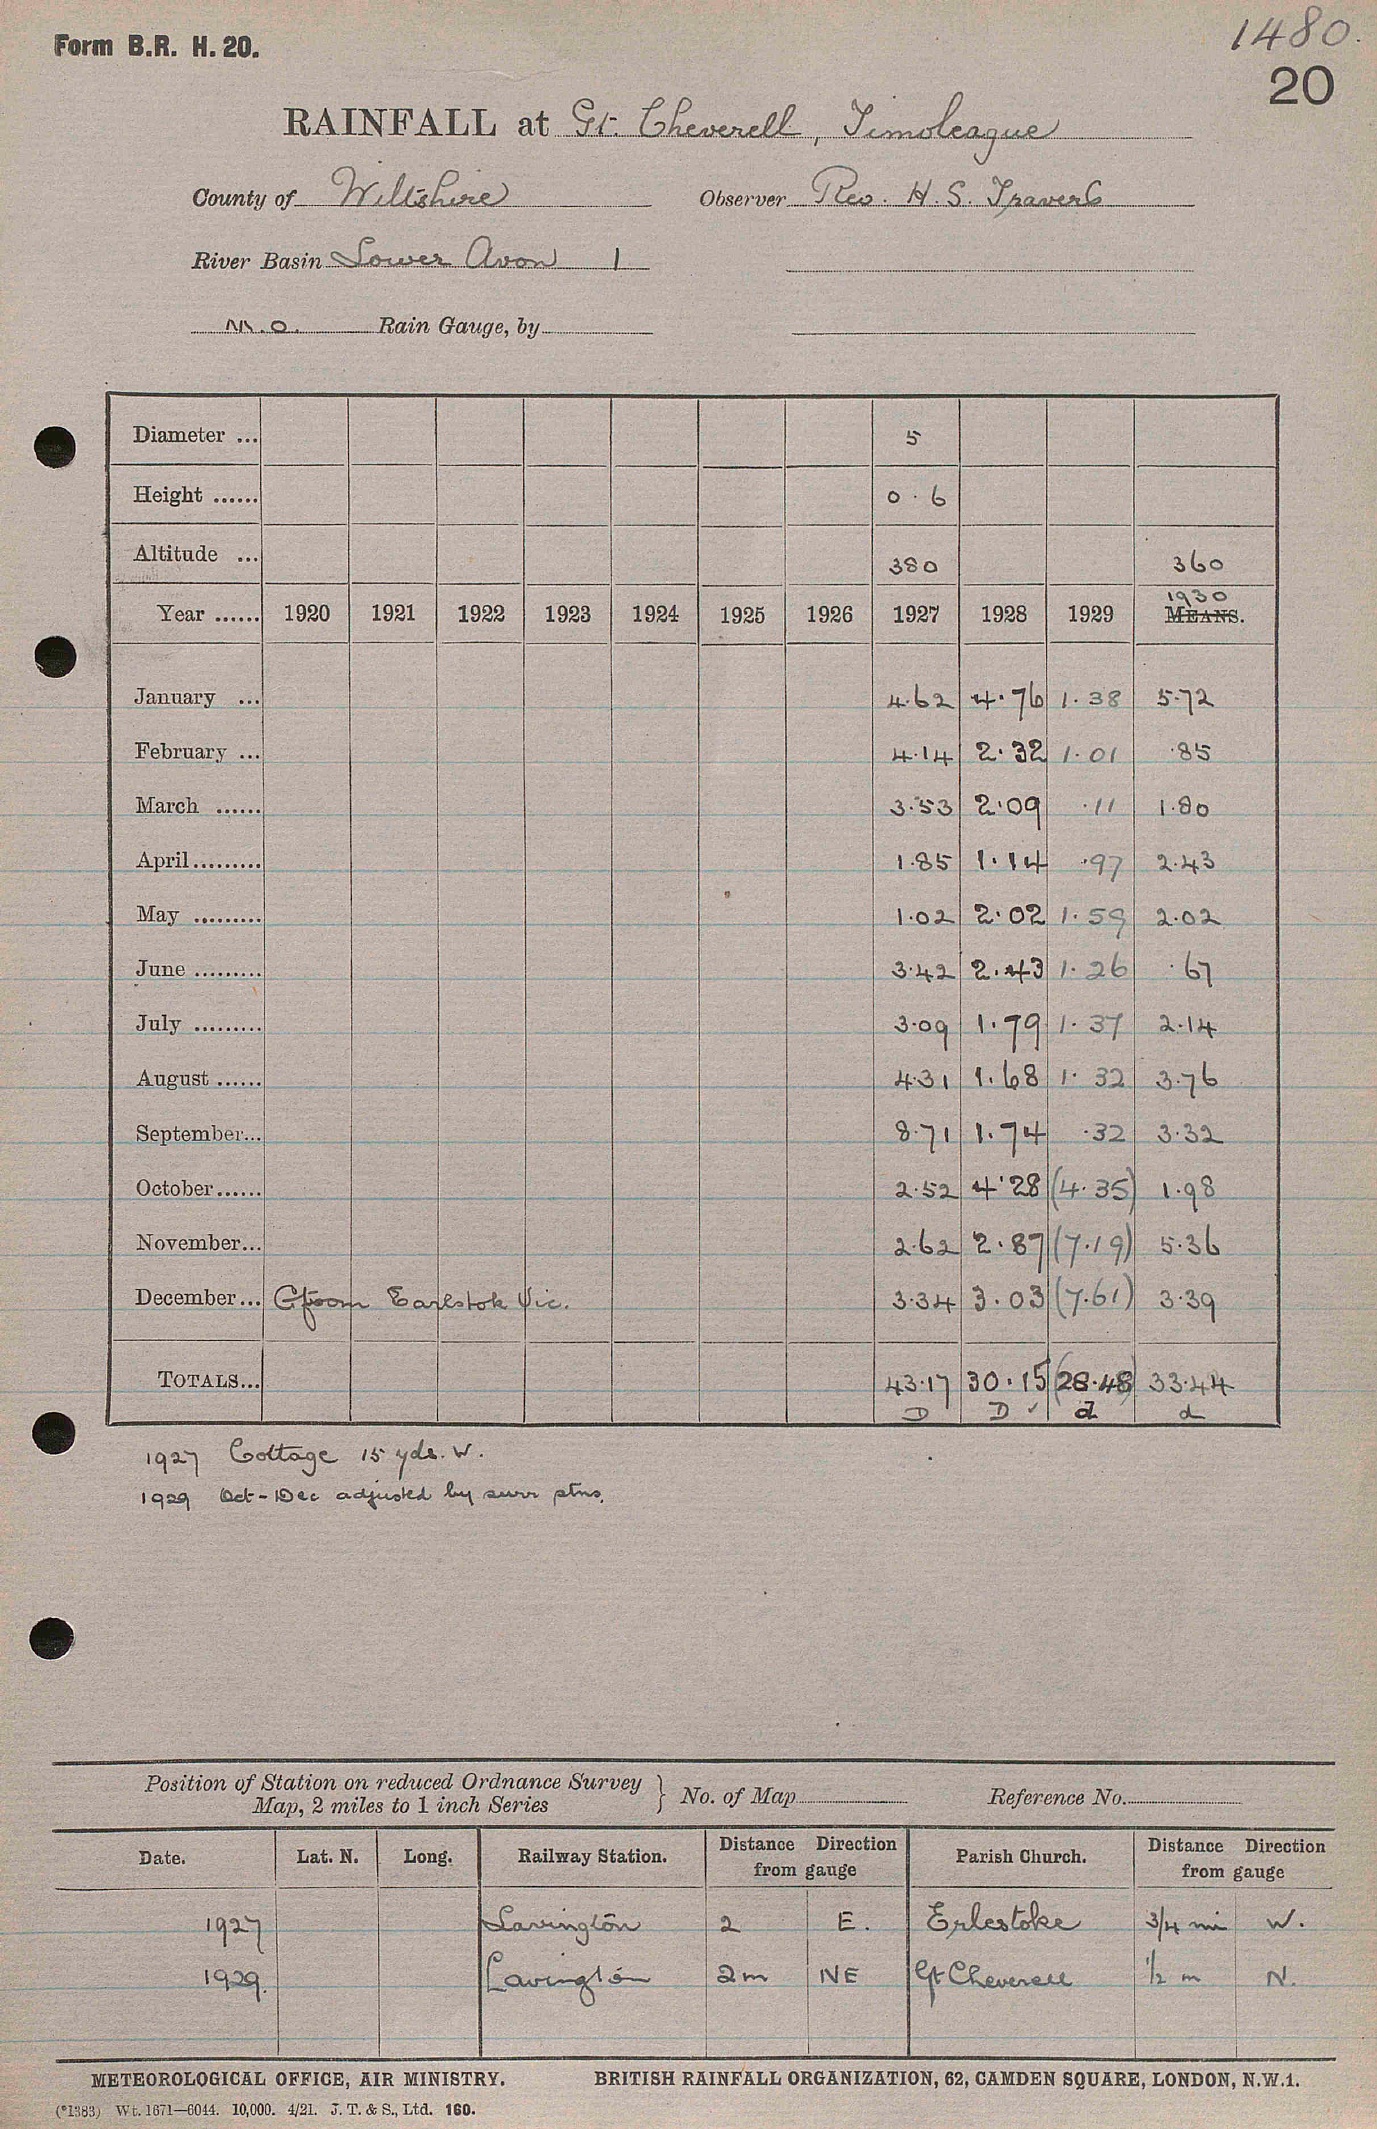 1480.
Form B.R. H. 20.
20
RAINFALL at Gt. Cheverell, Timoleague
County of Wiltshire Observer Rev. H. S. Travers
River Basin Lower Avon 1
M.O. Rain Gauge, by
Diameter ... 5
Height ...... 0.6
Altitude ... 380 360
1930
Year ...... 1920 1921 1922 1923 1924 1925 1926 1927 1928 1929 MEANS.
January ... 4.62 4.76 1.38 5.72
February ... 4.14 2.32 1.01 .85
March ...... 3.53 2.09 .11 1.80
April......... 1.85 1.14 .97 2.43
May ......... 1.02 2.02 1.59 2.02
June ......... 3.42 2.43 1.26 .67
July ......... 3.09 1.79 1.37 2.14
August ...... 4.31 1.68 1.32 3.76
September... 8.71 1.74 .32 3.32
October...... 2.52 4.28 (4.35) 1.98
November... 2.62 2.87 (7.19) 5.36
December... from Earlstok Vic. 3.34 3.03 (7.61) 3.39
TOTALS... 43.17 30.15 (28.48) 33.44
D D ✓ d d
1927 Cottage 15 yds. W.
1929 Oct - Dec adjusted by surr stns.
Position of Station on reduced Ordnance Survey
Map, 2 miles to 1 inch Series } No. of Map Reference No.
Date. Lat. N. Long. Railway Station. Distance Direction from gauge Parish Church. Distance Direction from gauge
1927 Lavington 2 E. Erlestoke 3/4 mi W.
1929. Lavington 2m NE Gt Cheverell 1/2 m N.
METEOROLOGICAL OFFICE, AIR MINISTRY. BRITISH RAINFALL ORGANIZATION, 62, CAMDEN SQUARE, LONDON, N.W.1.
(*1383) Wt. 1671—6044. 10,000. 4/21. J. T. & S., Ltd. 160.